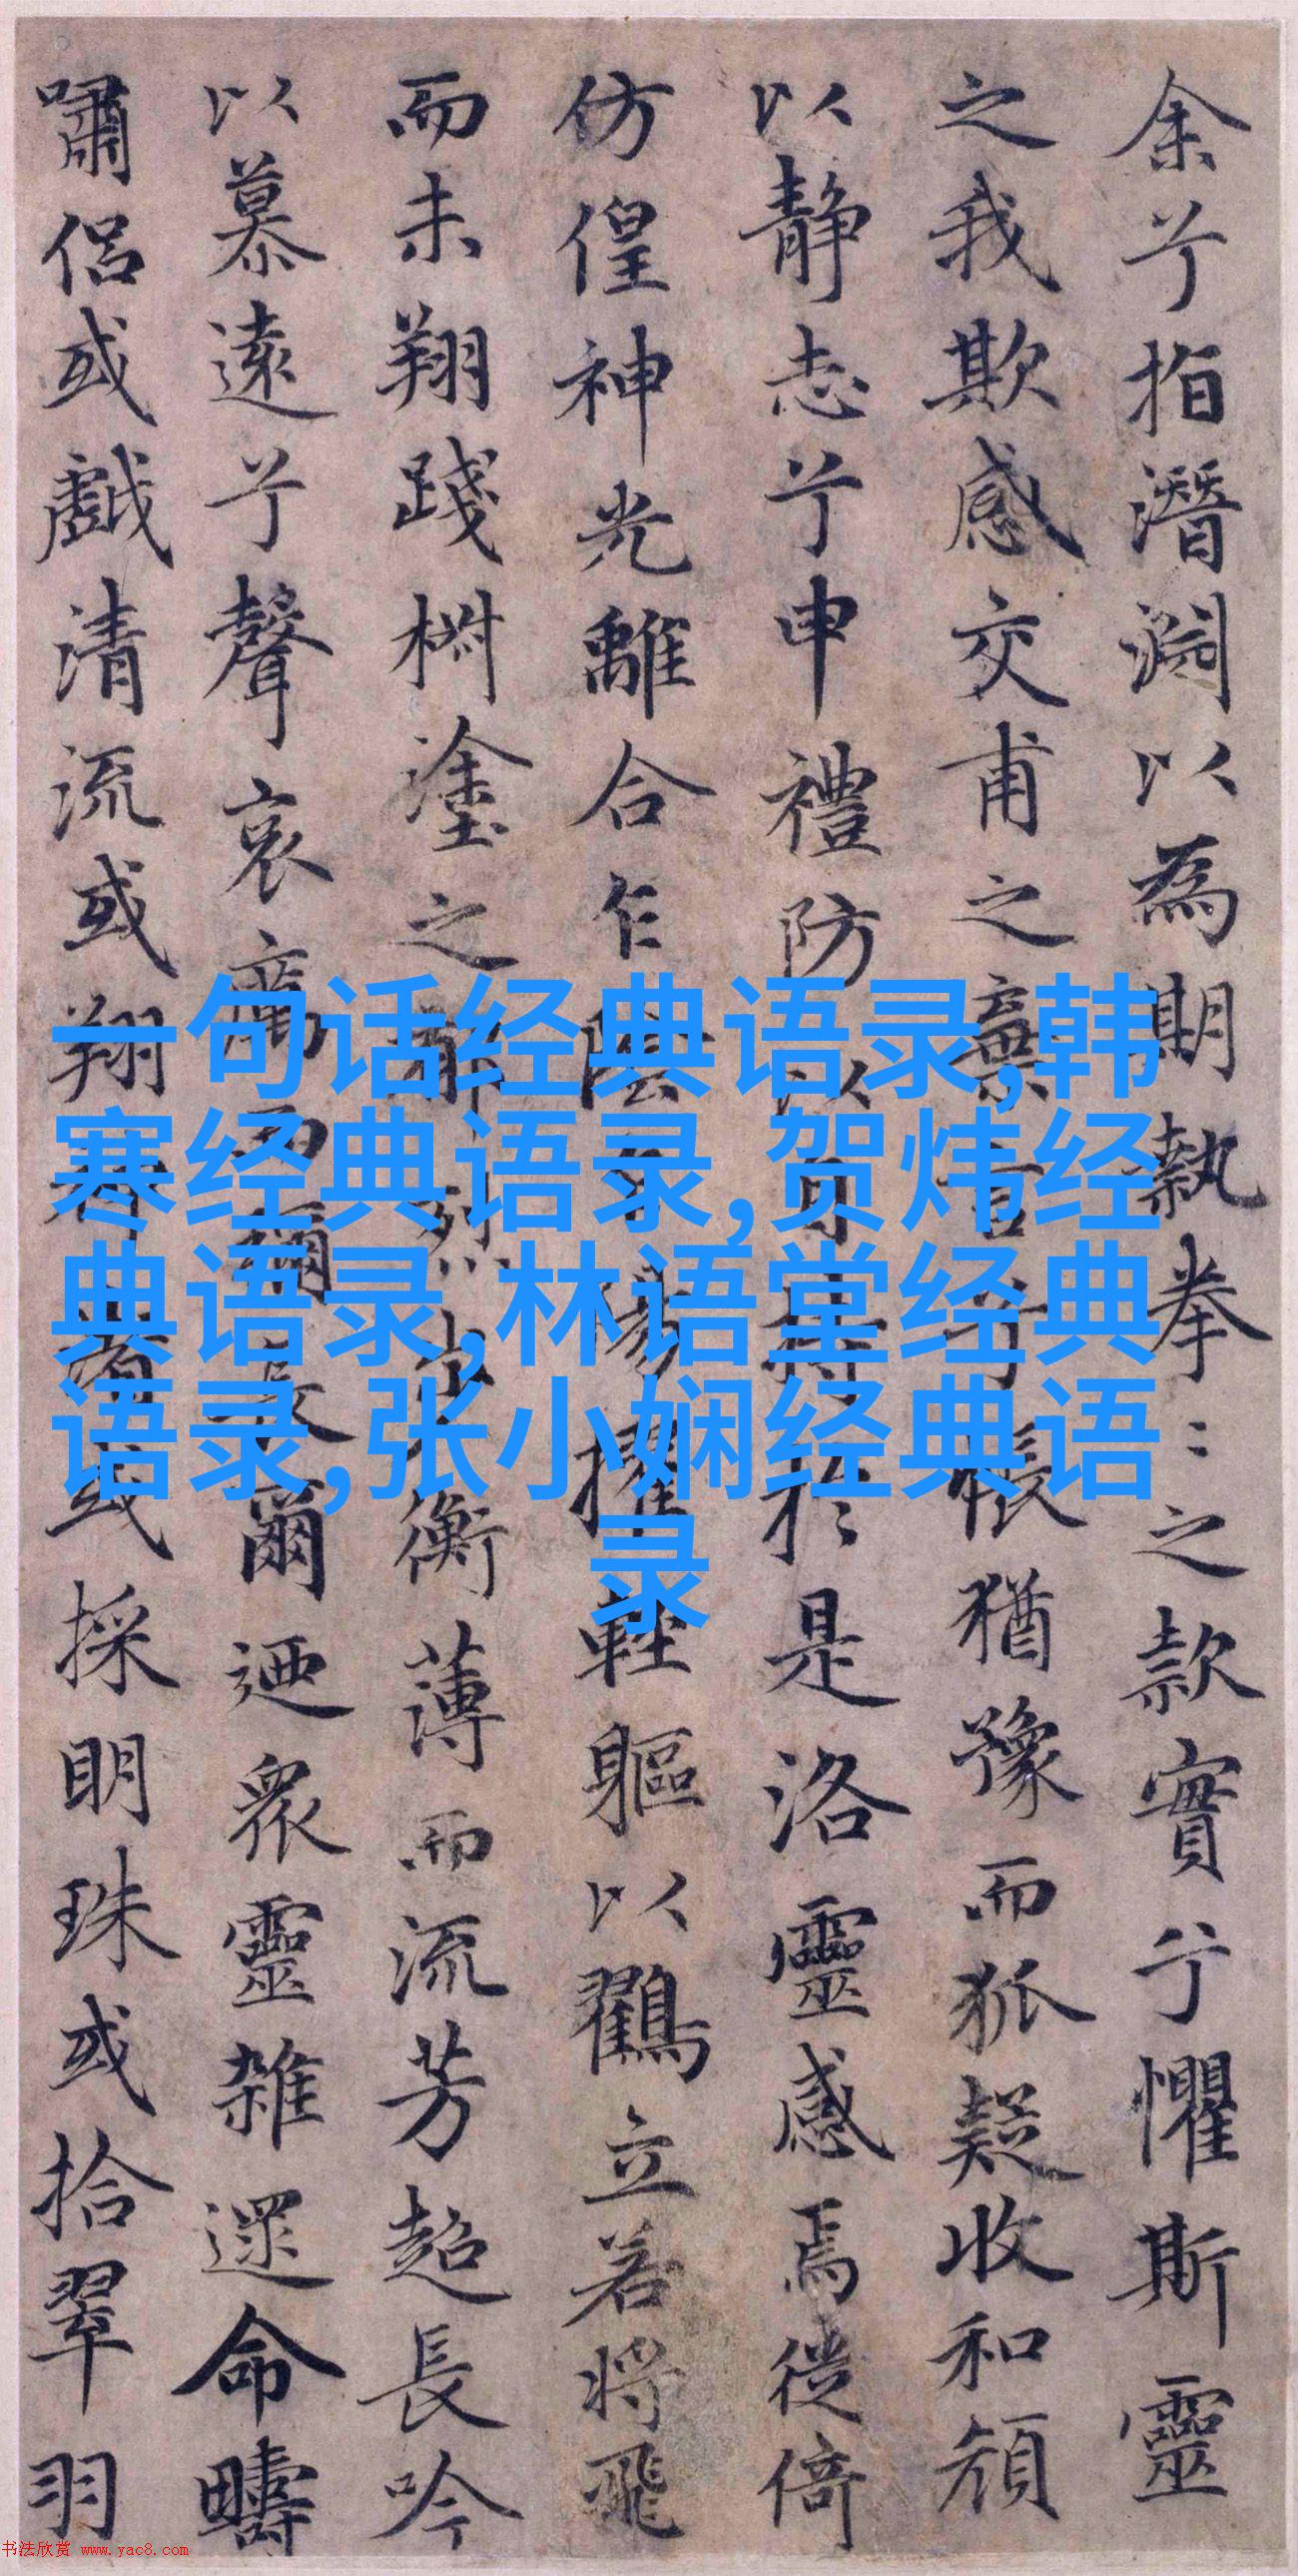 余兮指潛淵以為期執拳〻之款實兮懼斯靈
之我欺感交甫之棄言兮悵猶豫而狐疑收和顏
以靜志兮申禮防以自持於是洛靈感焉徙倚
仿偟神光離合乍陰乍陽擢輕軀以鶴立若將飛
而未翔踐椒塗之郁烈步衡薄而流芳超長吟
以慕遠兮聲哀厲而彌長爾迺眾靈雜遝命疇
嘯侶或戲清流或翔神渚或採明珠或拾翠羽
一句话经典语录,韩
寒经典语录,贺炜经
典语录,林语堂经典
语录,张小娴经典语
录
书法欣赏 www.yac8.com